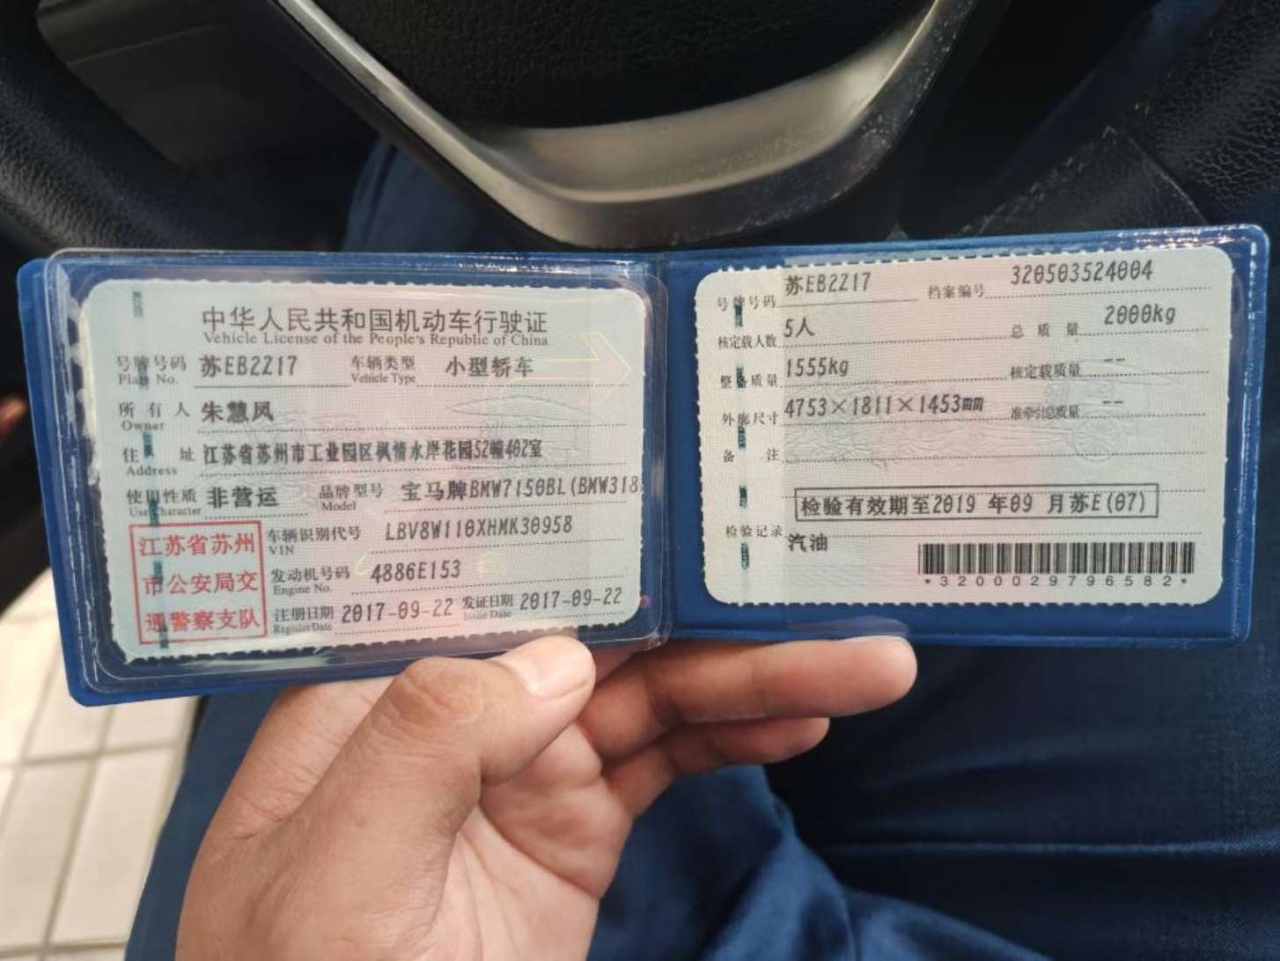 中华人民共和国机动车行驶证
Vehicle License of the People's Republic of China
号牌号码 苏EB2Z17 车辆类型 小型轿车
Plate No. Vehicle Type
所有人 朱慧凤
Owner
住址 江苏省苏州市工业园区枫情水岸花园52幢402室
Address
使用性质 非营运 品牌型号 宝马牌BMW7150BL(BMW318
Use Character Model
江苏省苏州
市公安局交
通警察支队
车辆识别代号 LBV8W110XHMK30958
VIN
发动机号码 4886E153
Engine No.
注册日期 2017-09-22 发证日期 2017-09-22
Register Date Issue Date
号牌号码 苏EB2Z17 档案编号 320503524004
核定载人数 5人 总质量 2000kg
整备质量 1555kg 核定载质量 --
外廓尺寸 4753×1811×1453mm 准牵引总质量 --
备注
检验有效期至2019 年09 月苏E(07)
检验记录
汽油
*3200029796582*